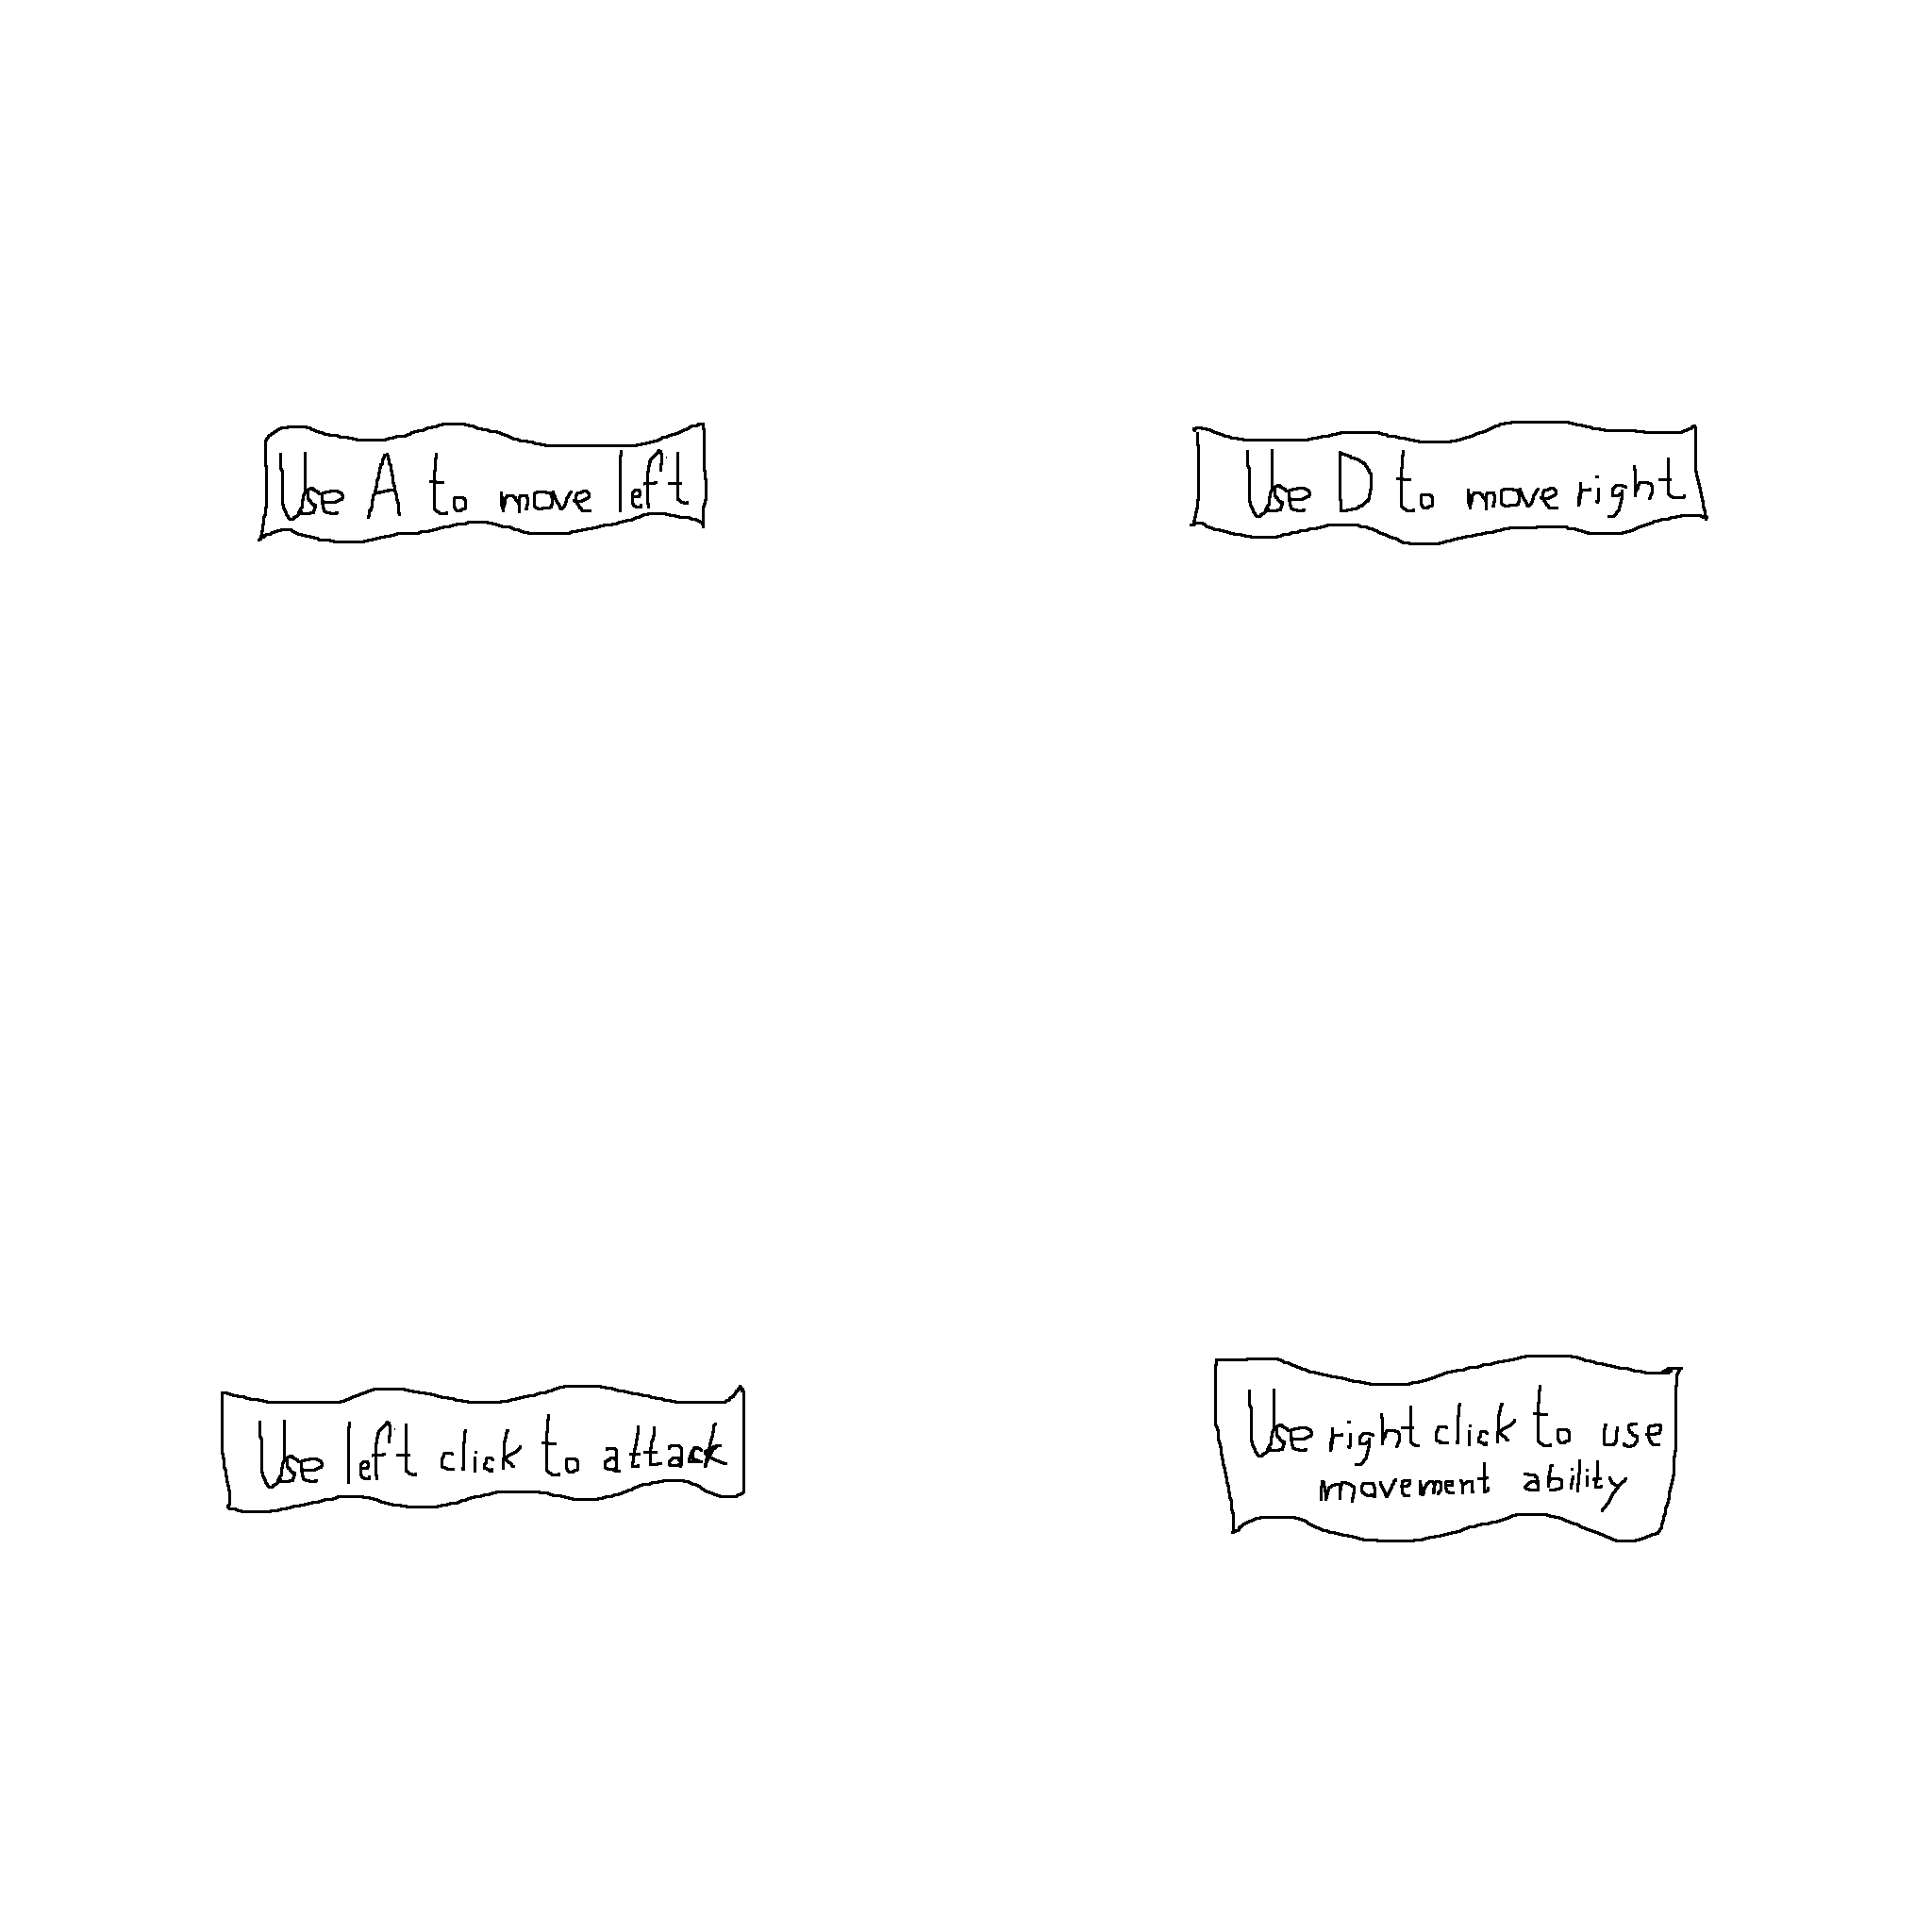 Use A to move left
Use D to move right
Use left click to attack
Use right click to use
movement ability